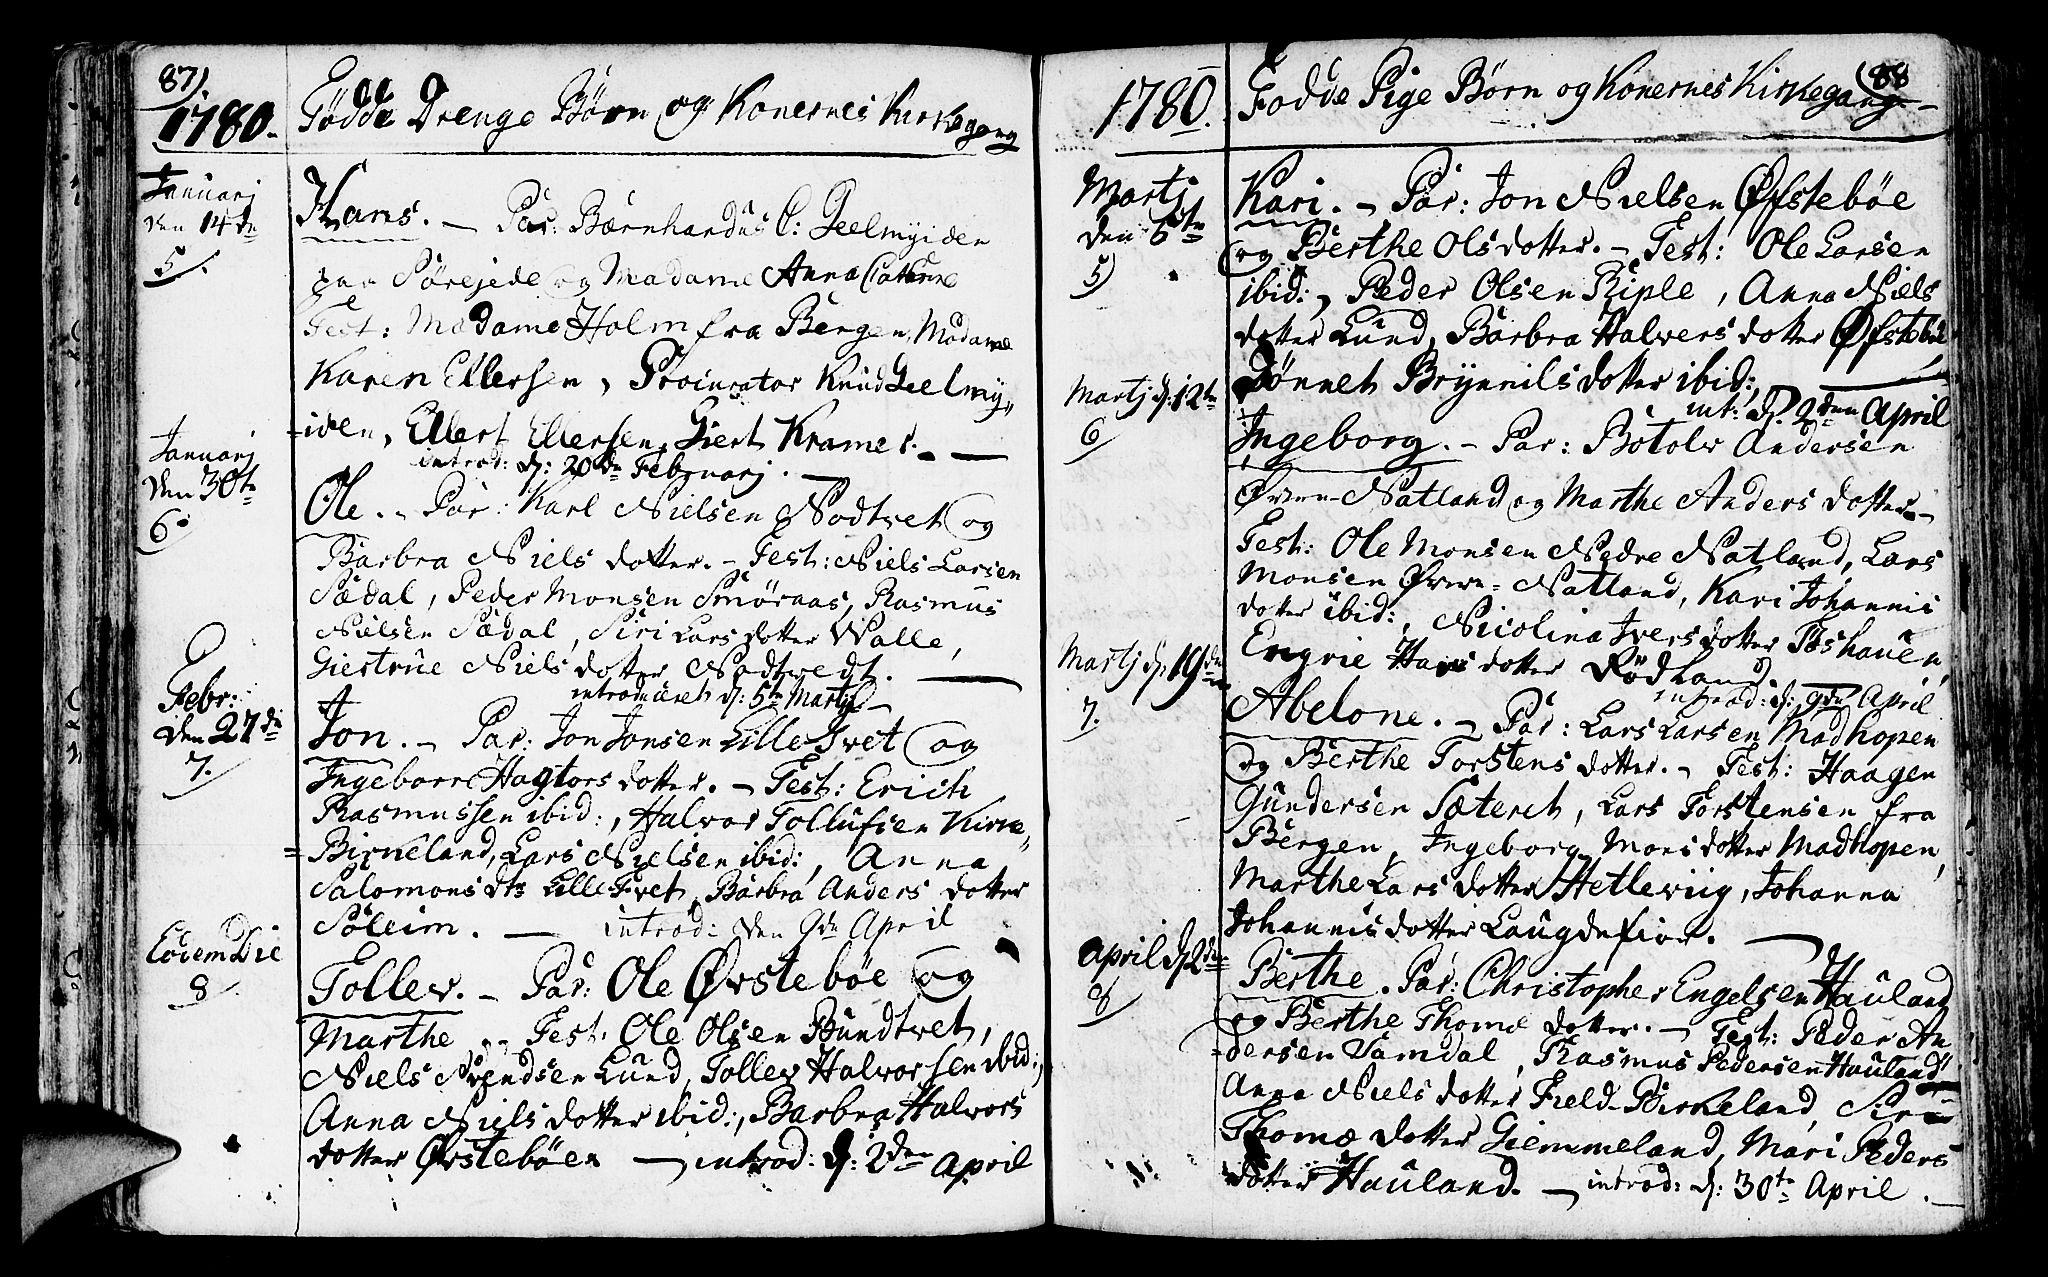 87).
1780. Födde Drenge Börn og Konernes Kirkegang
Januarj
den 14de
5.
Hans. – Par: Bærnhardus C: Geelmyiden
paa Sörejede og Madame Anna Catrine
Test: Madame Holm fra Bergen, Madame
Karen Ellersen, Procurator Knud Geelmy„
=iden, Ellert Ellersen, Giert Kramer. –
introd: d: 20de Februarj. –
Januarj
den 30te
6
Ole. – Par: Karl Nielsen Nodtvet og
Barbra Niels dotter. – Test: Niels Larsen
Sædal, Peder Monsen Smöraas, Rasmus
Nielsen Sædal, Siri Lars dotter Walle,
Giertrue Niels dotter Nodtvedt. –
introduceret d: 5te Martj –
Febr:
den 27de
7.
Jon. – Par: Jon Jonsen Lille Tvet og
Ingeborre Hagtors dotter. – Test: Erich
Rasmussen ibid:, Halvor Tollufsen Kirke„
=Birkeland, Lars Nielsen ibid:, Anna
Salomons dtr Lille Tvet, Barbra Anders dotter
Söleim. – introd: den 9de April
Eodem Die
8
Tollev. – Par: Ole Övsteböe og
Marthe – Test: Ole Olsen Bundtvet,
Niels Svendsen Lund, Tollev Halvorsen ibid:,
Anna Niels dotter ibid:, Barbra Halvors
dotter Övsteböen – introd: d: 2den April
88
1780. Fodde Pige Börn og Konernes Kirkegang –
Martj
den 5te
5)
Kari. – Par: Jon Nielsen Öfsteböe
og Berthe Olsdotter. – Test: Ole Larsen
ibid:, Peder Olsen Riple, Anna Niels
dotter Lund, Barbra Halvers dotter Öfsteböe
Dönnet Brynnils dotter ibid:,
int: d. 2den April
Martj d: 12te
6
Ingeborg. – Par: Botolv Andersen
Övre Natland og Marthe Anders dotter –
Test: Ole Monsen Nedre Natland, Lars
Monsen Övre = Natland, Kari Johannis
dotter ibid:, Nicolina Ivers dotter
Engrie Hans dotter Rödland.
introd: d: 9de April
Martj d: 19de
7.
Abelone. – Par: Lars Larsen Madhopen
og Berthe Torstens dotter. – Test: Haagen
Gundersen Sæteret, Lars Torstensen fra
Bergen, Ingeborg Monsdotter Madhopen,
Marthe Lars dotter Hetleviig, Johanna
Johannis dotter Laugdefior. –
April d. 2den
8
Berthe. Par: Christopher Engelsen Hauland
og Berthe Thomæ dotter. – Test: Peder An
=dersen Samdal, Rasmus Pedersen Hauland
Anna Niels dotter Field Birkeland, Siri
Thomæ dotter Giemmeland, Mari Peders
dotter Hauland. – introd: d: 30te April. –